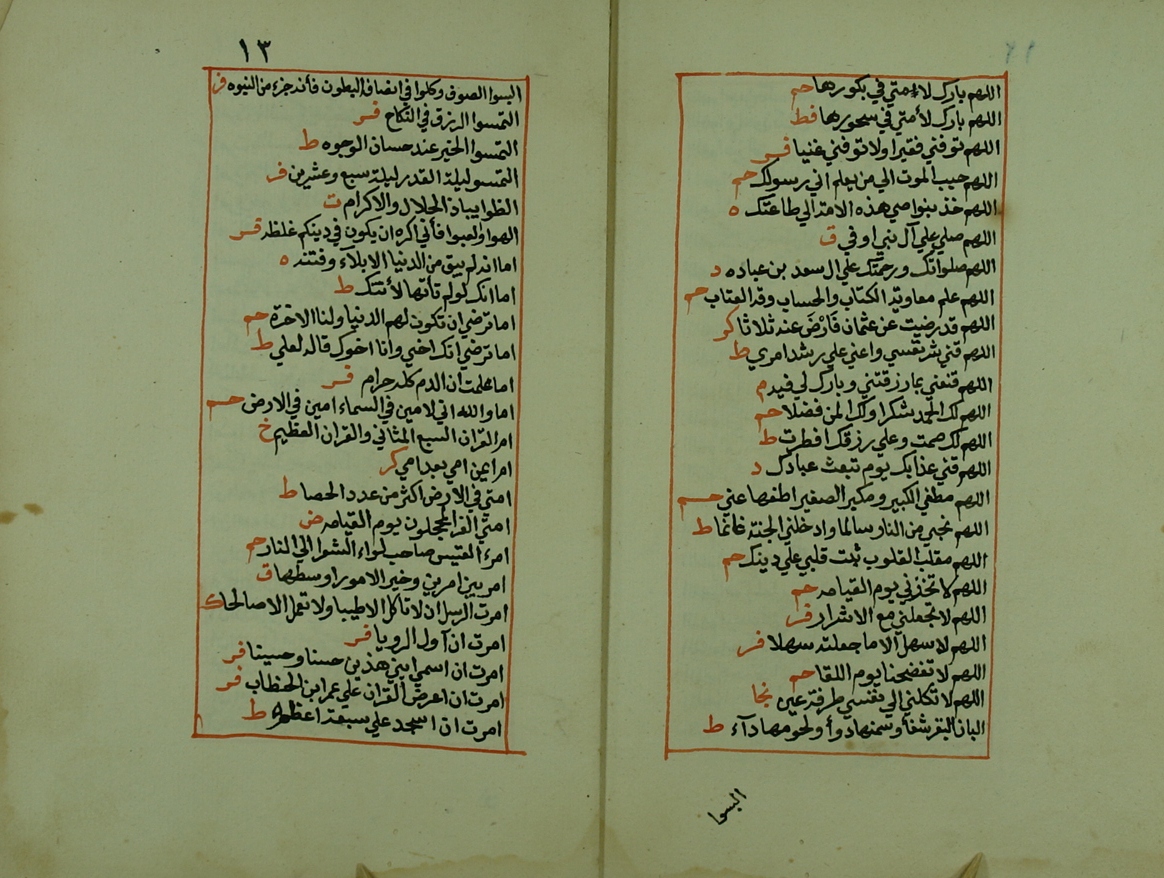 ١٢
اللهم بارك لامتي في بكورها حم
اللهم بارك لأمتي في سحورها فط
اللهم توفني فقيرا ولا توفني غنيا فر
اللهم حبب الموت الي من يعلم اني رسولك حم
اللهم خذ بنواصي هذه الامة الي طاعتك ه
اللهم صلي علي آل بني اوفي ق
اللهم صلواتك ورحمتك علي ال سعد بن عباده د
اللهم علم معاوية الكتاب والحساب وقه العتاب حم
اللهم قد رضيت عن عثمان فارض عنه ثلاثا كر
اللهم قني شر نفسي واعني علي رشد امري ط
اللهم قنعني بما رزقتني وبارك لي فيه م
اللهم لك الحمد شكرا ولك المن فضلا حم
اللهم لك صمت وعلي رزقك افطرت ط
اللهم قني عذابك يوم تبعث عبادك د
اللهم مطفي الكبير ومكبر الصغير اطفها عني حم
اللهم نجني من النار سالما وادخلني الجنة غانما ط
اللهم مقلب القلوب ثبت قلبي علي دينك حم
اللهم لا تخزني يوم القيامه حم
اللهم لا تجعلني مع الاشرار فر
اللهم لا سهل الا ما جعلته سهلا فر
اللهم لا تفضحنا يوم اللقا حم
اللهم لا تكلني الي نفسي طرفة عين نجا
البان البقر شفأ وسمنها دوأ ولحومها دآء ط
البسوا
١٣
البسوا الصوف وكلوا في انصاف البطون فأنه جزء من النبوه فر
التمسوا الرزق في النكاح فر
التمسوا الخير عند حسان الوجوه ط
التمسو ليلة القدر ليلة سبع وعشرين فر
الظوا بياذ الجلال والاكرام ت
الهوا والعبوا فأني اكره ان يكون في دينكم غلظه فر
اما انه لم يبق من الدنيا الا بلآء وفتنه ه
اما انك لو لم تأتها لأتتك ط
اما ترضي ان تكون لهم الدنيا ولنا الاخرة حم
اما ترضي انك اخي وانا اخوك قاله لعلي ط
اما علمت ان الدم كله حرام فر
اما والله اني لامين في السماء امين في الارض حم
ام القران السبع المثاني والقران العظيم خ
ام ايمن امي بعد امي كر
امتي في الارض اكثر من عدد الحصا ط
امتي الغر المحجلون يوم القيامه ض
امرء القيس صاحب لواء الشوا الي النار حم
امر بين امرين وخير الامور اوسطها ق
امرت الرسل ان لا تاكل الا طيبا ولا تعمل الا صالحا ك
امرت ان آول الرويا فر
امرت ان اسمي ابني هذين حسنا وحسينا فر
امرت ان اعرض القران علي عمر ابن الخطاب فر
امرت ان اسجد علي سبعة اعظم ط